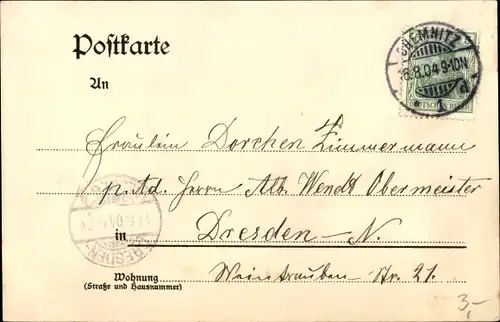 Postkarte
CHEMNITZ
6.8.04 9-10N
DEUTSCHES REICH
1 d
An
Fräulein Dorchen Zimmermann
p. Ad. Herrn Alb. Wendt Obermeister
in Dresden-N.
Weintrauben-Str. 21.
Wohnung
(Straße und Hausnummer)
DRESDEN
3,-